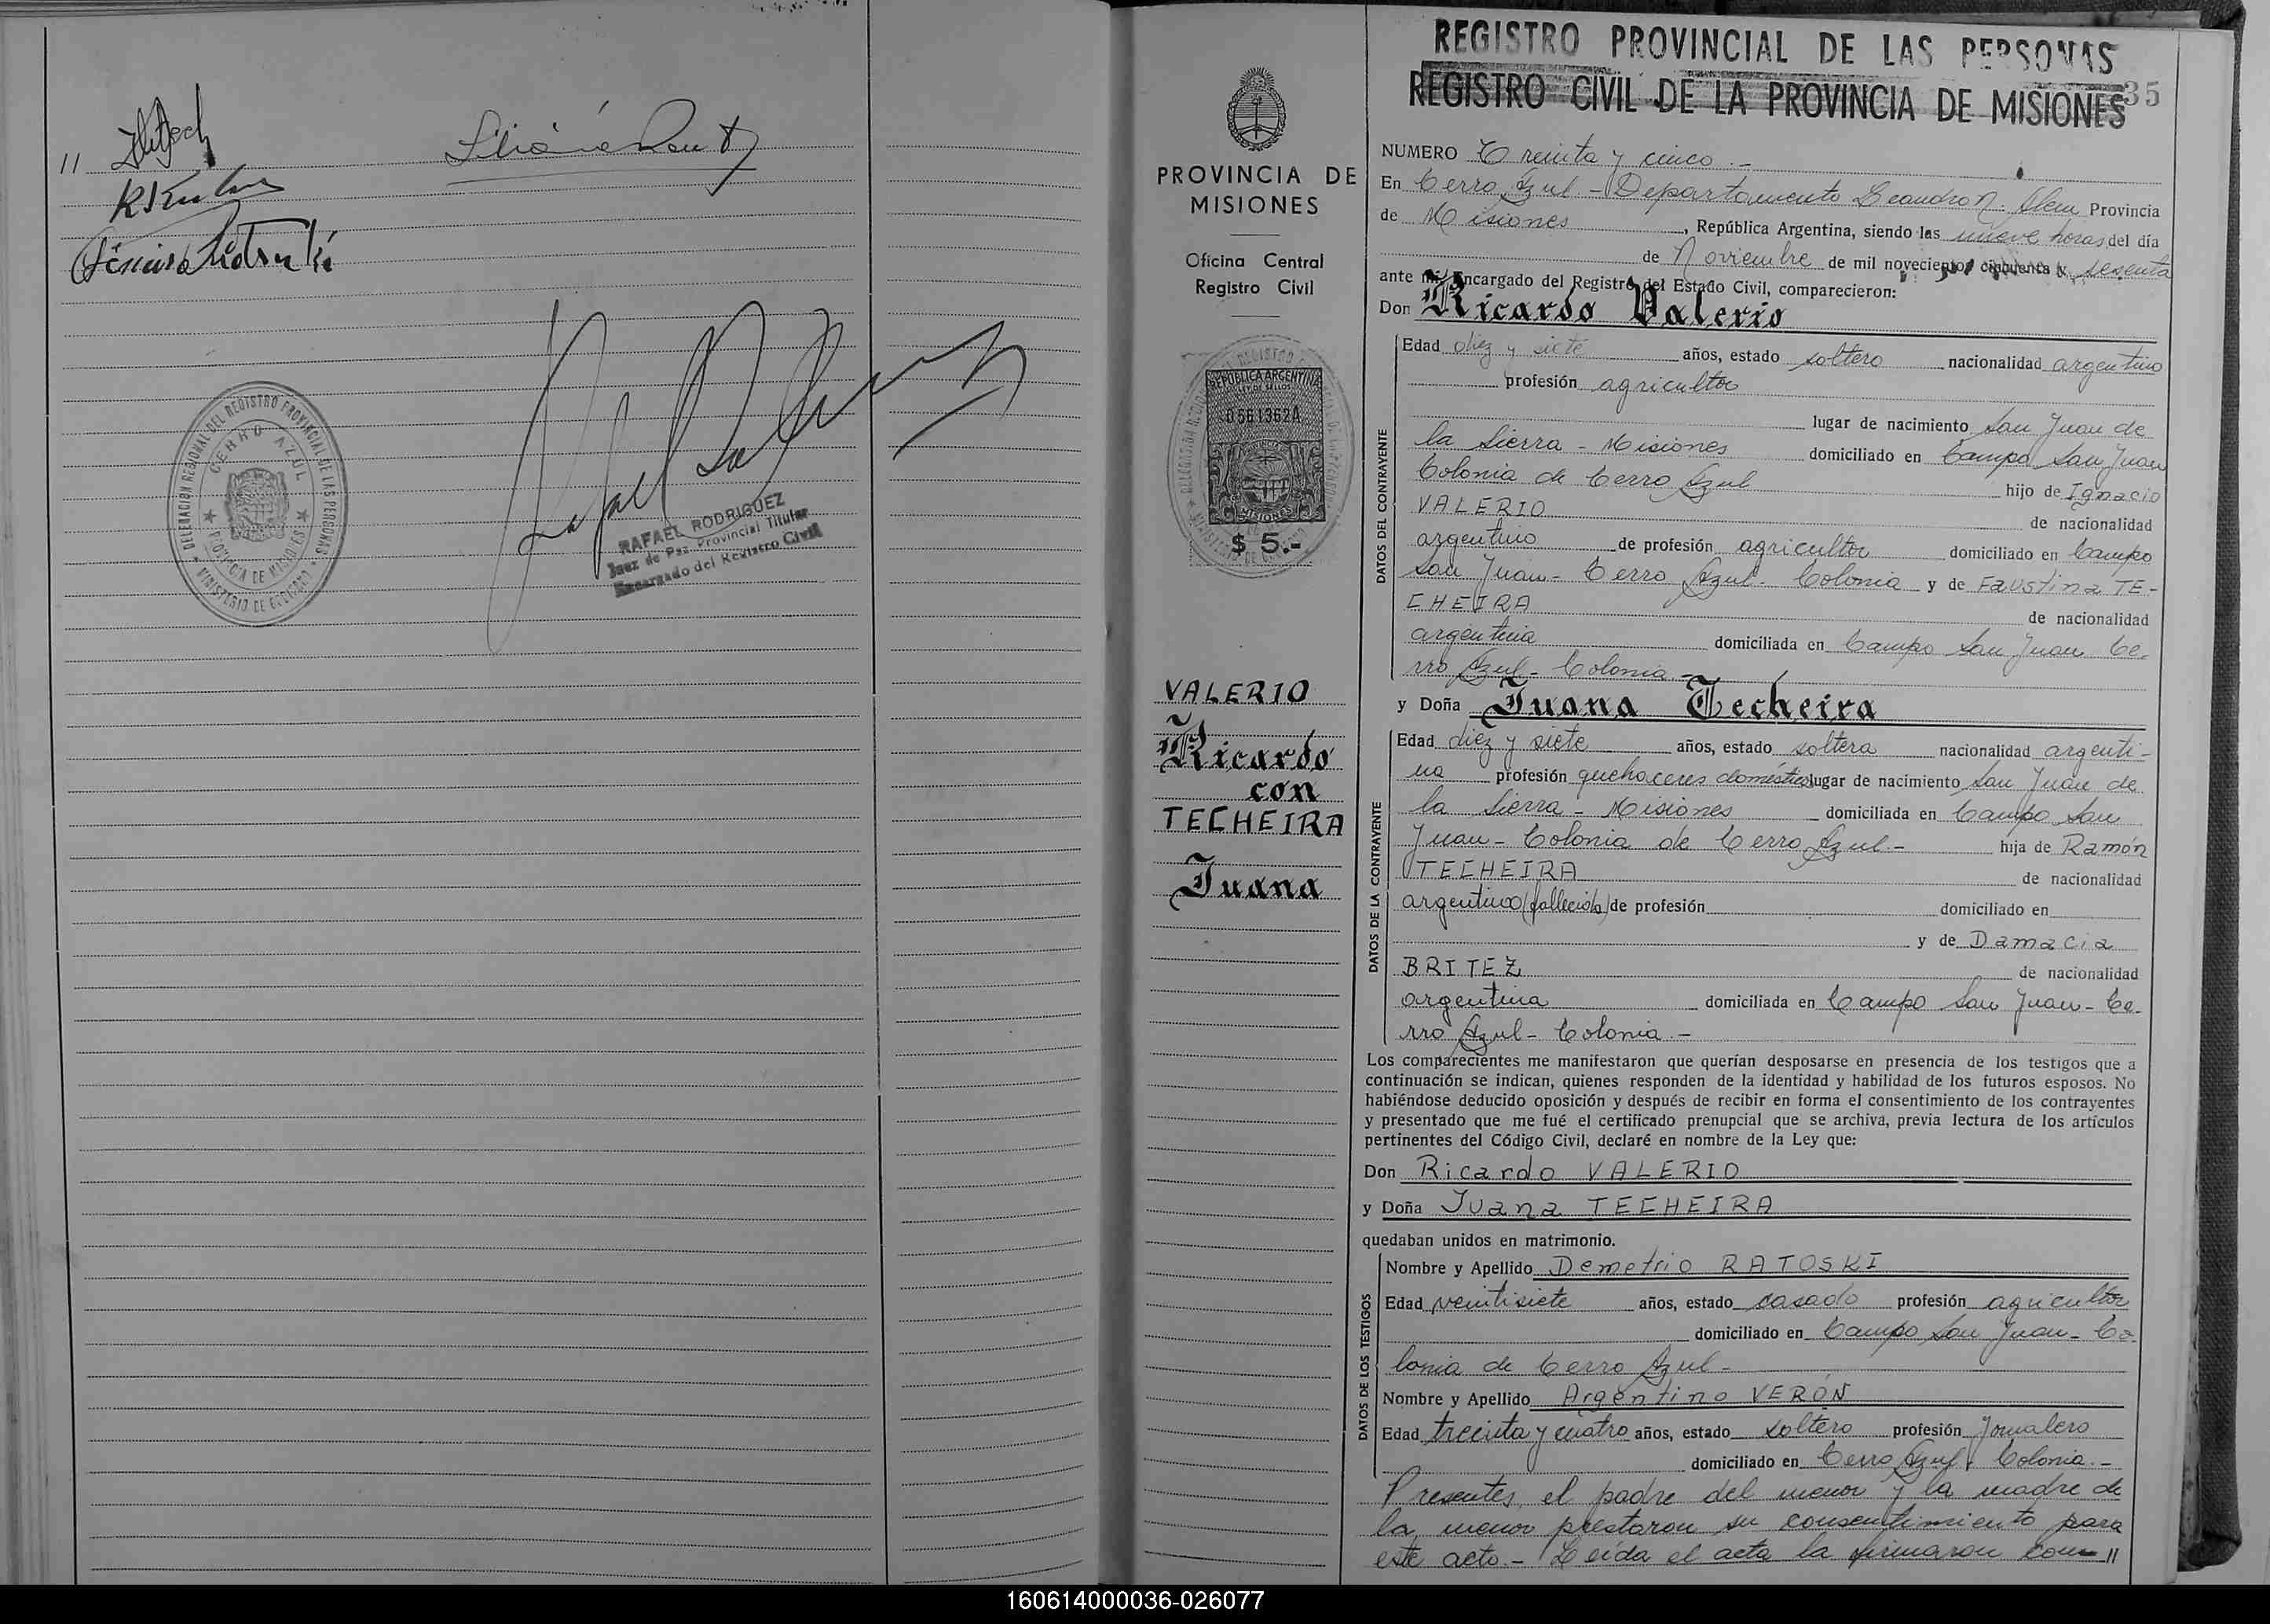 11
DELEGACION REGIONAL DEL REGISTRO PROVINCIAL DE LAS PERSONAS
CERRO AZUL
PROVINCIA DE MISIONES
MINISTERIO DE GOBIERNO
RAFAEL RODRIGUEZ
Juez de Paz Provincial Titular
Encargado del Registro Civil
REGISTRO PROVINCIAL DE LAS PERSONAS
REGISTRO CIVIL DE LA PROVINCIA DE MISIONES
35
PROVINCIA DE
MISIONES
Oficina Central
Registro Civil
REPUBLICA ARGENTINA
LEY DE SELLOS
0561362A
MISIONES
$ 5.-
VALERIO
Ricardo
con
TECHEIRA
Juana
NUMERO Treinta y cinco.-
En Cerro Azul - Departamento Leandro N. Alem Provincia
de Misiones, República Argentina, siendo las nueve horas del día
de Noviembre de mil novecientos cincuenta y sesenta
ante mí Encargado del Registro del Estado Civil, comparecieron:
Don Ricardo Valerio
DATOS DEL CONTRAYENTE
Edad diez y siete años, estado soltero nacionalidad argentino
profesión agricultor
lugar de nacimiento San Juan de
la Sierra - Misiones domiciliado en Campo San Juan
Colonia de Cerro Azul hijo de Ignacio
VALERIO de nacionalidad
argentino de profesión agricultor domiciliado en Campo
San Juan - Cerro Azul - Colonia y de Faustina TE-
CHEIRA de nacionalidad
argentina domiciliada en Campo San Juan Ce-
rro Azul - Colonia.-
y Doña Juana Techeira
DATOS DE LA CONTRAYENTE
Edad diez y siete años, estado soltera nacionalidad argenti-
na profesión quehaceres domésticos lugar de nacimiento San Juan de
la Sierra - Misiones domiciliada en Campo San
Juan - Colonia de Cerro Azul - hija de Ramón
TECHEIRA de nacionalidad
argentino (fallecido) de profesión domiciliado en
y de Damacia
BRITEZ de nacionalidad
argentina domiciliada en Campo San Juan - Ce-
rro Azul - Colonia.-
Los comparecientes me manifestaron que querían desposarse en presencia de los testigos que a
continuación se indican, quienes responden de la identidad y habilidad de los futuros esposos. No
habiéndose deducido oposición y después de recibir en forma el consentimiento de los contrayentes
y presentado que me fué el certificado prenupcial que se archiva, previa lectura de los artículos
pertinentes del Código Civil, declaré en nombre de la Ley que:
Don Ricardo VALERIO
y Doña Juana TECHEIRA
quedaban unidos en matrimonio.
DATOS DE LOS TESTIGOS
Nombre y Apellido Demetrio RATOSKI
Edad veintisiete años, estado casado profesión agricultor
domiciliado en Campo San Juan - Co-
lonia de Cerro Azul -
Nombre y Apellido Argentino VERÓN
Edad treinta y cuatro años, estado soltero profesión jornalero
domiciliado en Cerro Azul Colonia.-
Presentes, el padre del menor y la madre de
la menor prestaron su consentimiento para
este acto.- Leída el acta la firmaron con 11
160614000036-026077